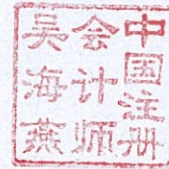 中国注册
会计师
吴海燕